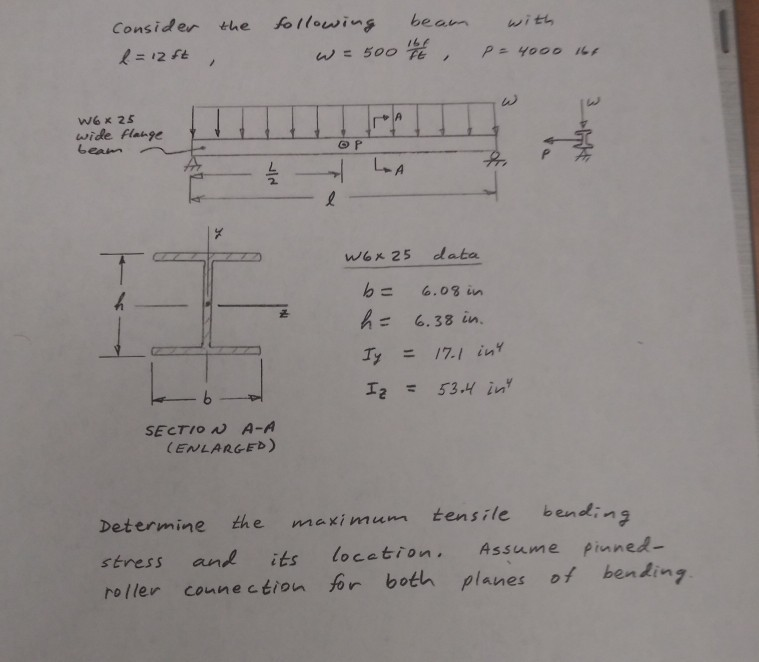 Consider the following beam with
l = 12 ft , w = 500 lbf/ft , P = 4000 lbf
w
W6x25
wide flange
beam
A
P
A
L/2
l
w
P
y
h
z
b
SECTION A-A
(ENLARGED)
W6x25 data
b = 6.08 in
h = 6.38 in.
Iy = 17.1 in4
Iz = 53.4 in4
Determine the maximum tensile bending
stress and its location. Assume pinned-
roller connection for both planes of bending.